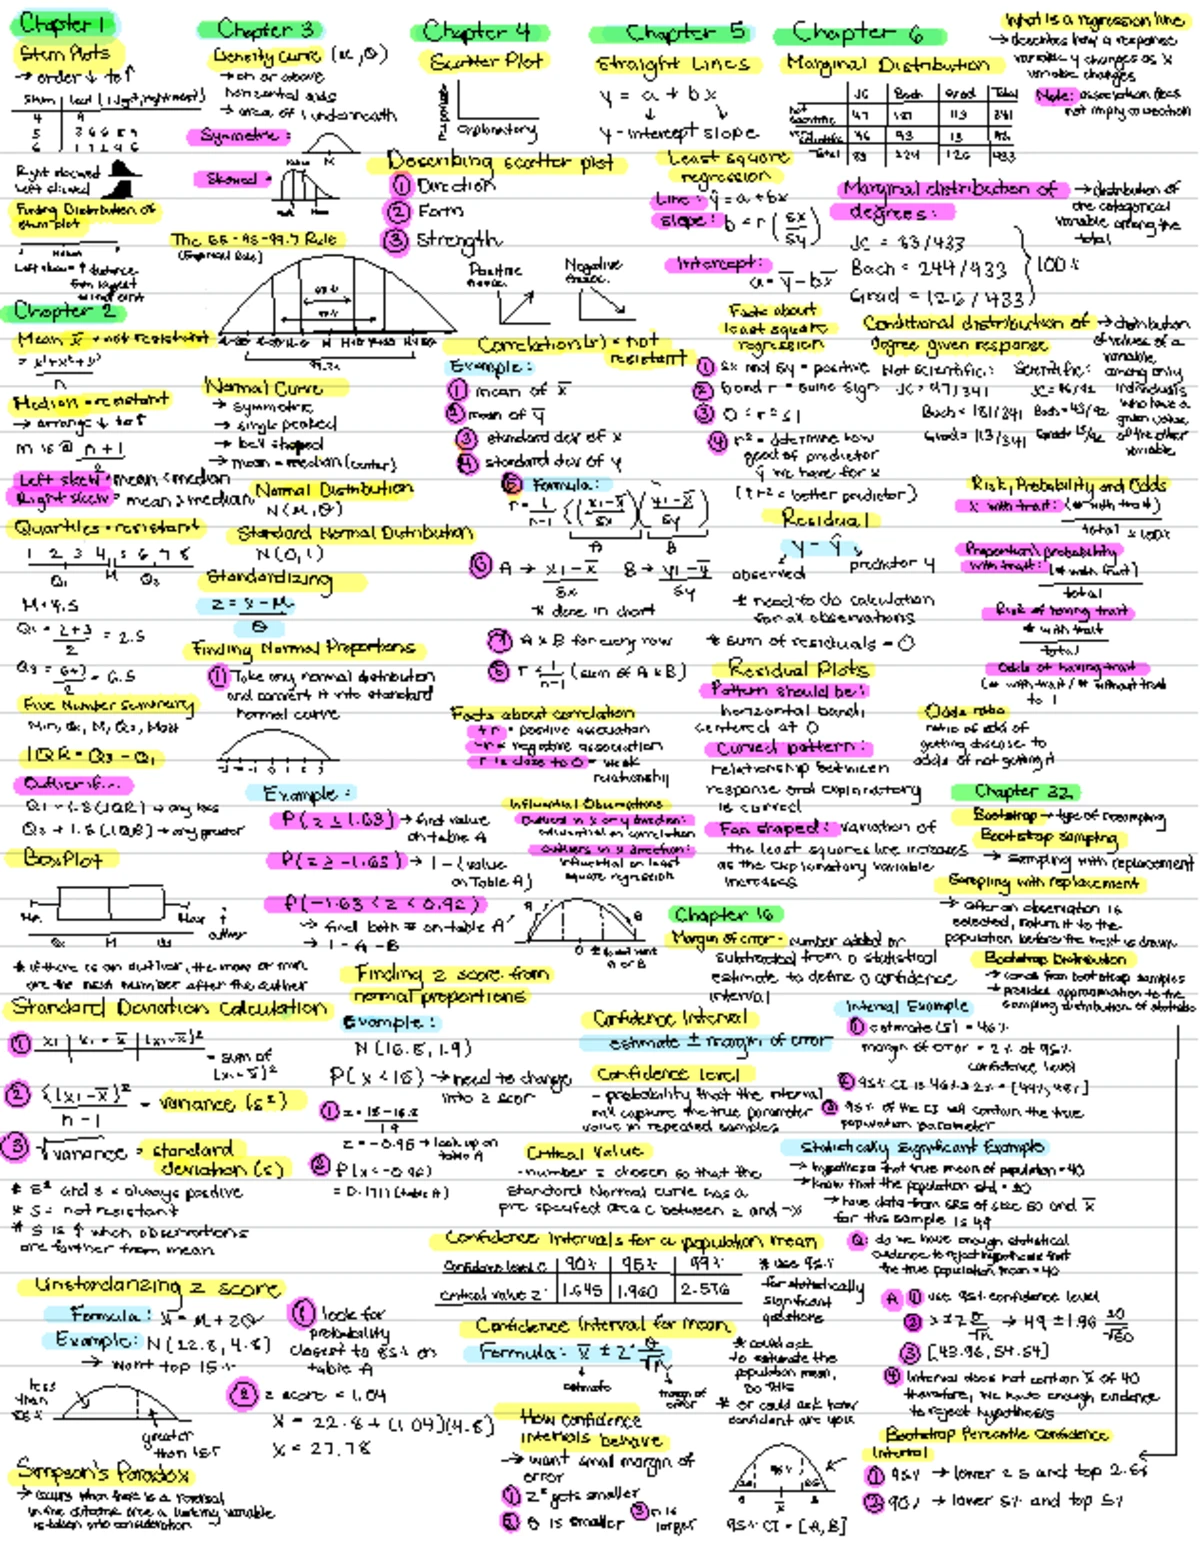 Chapter 1
Stem Plots
→ order ↓ to ↑
Stem | Leaf (1 digit, rightmost)
4
5
6
Right skewed
Left skewed
Finding Distribution of
stem plot
Chapter 2
Mean x̄ = not resistant
n
Median = resistant
→ arrange ↓ to ↑
M is @ n + 1
2
Left skew = mean < median
Right skew = mean > median
Quartiles = resistant
1 2 3 4 5 6 7 8
Q1 M Q3
M = 4.5
Q1 = 2+3 = 2.5
2
Q3 = 6+7 = 6.5
2
Five Number Summary
Min, Q1, M, Q3, Max
IQR = Q3 - Q1
Outlier if...
Q1 - 1.5 (IQR) → any less
Q3 + 1.5 (IQR) → any greater
Box Plot
Min Max
outlier
Q1 M Q3
* if there is an outlier, the max or min
are the next number after the outlier
Standard Deviation Calculation
① xi | xi - x̄ | (xi - x̄)²
= sum of
(xi - x̄)²
② Σ(xi - x̄)² = variance (s²)
n - 1
③ √variance = standard
deviation (s)
* s² and s = always positive
* s = not resistant
* s is ↑ when observations
are farther from mean
Unstandarizing z score
Formula: x = M + zθ
Example: N (22.8, 4.8)
→ want top 15%
less
than
85%
greater
than 15%
① look for
probability
closest to 85% on
table A
② z score = 1.04
x = 22.8 + (1.04)(4.8)
x = 27.78
Simpson's Paradox
→ occurs when there is a reversal
in the outcome once a lurking variable
is taken into consideration
Chapter 3
Density Curve (M, θ)
→ on or above
horizontal axis
→ area of 1 underneath
Symmetric:
Skewed:
The 68-95-99.7 Rule
(Empirical Rule)
Normal Curve
→ symmetric
→ single peaked
→ bell shaped
→ mean = median (center)
Normal Distribution
N (M, θ)
Standard Normal Distribution
N (0, 1)
Standardizing
z = x - M
θ
Finding Normal Proportions
① Take any normal distribution
and convert it into standard
normal curve
Example:
P(z ≤ 1.63) → find value
on table A
P(z ≥ -1.63) → 1 - (value
on Table A)
P(-1.63 < z < 0.92)
→ find both # on table A
→ 1 - A - B
Finding z score from
normal proportions
Example:
N (16.8, 1.9)
P( x < 15) → need to change
into z score
① z = 15 - 16.8
1.9
z = -0.95 → look up on
table A
② P(x < -0.95)
= 0.1711 (table A)
Chapter 4
Scatter Plot
Response
Explanatory
Describing scatter plot
① Direction
② Form
③ Strength
Positive
Negative
Correlation (r) = not
resistant
Example:
① mean of x̄
② mean of ȳ
③ standard dev of x
④ standard dev of y
⑤ Formula:
r = 1 Σ (xi - x̄) (yi - ȳ)
n-1 sx sy
A B
⑥ A → xi - x̄ B → yi - ȳ
sx sy
* done in chart
⑦ A x B for every row
⑧ r = 1 (sum of A x B)
n-1
Facts about correlation
+r = positive association
-r = negative association
r is close to 0 = weak
relationship
Influential Observations
Outliers in x or y direction:
influential on correlation
Outliers in x direction:
influential on least
square regression
Chapter 5
Straight Lines
y = a + bx
y-intercept slope
Least square
regression
Line: ŷ = a + bx
slope: b = r
Intercept:
a = ȳ - bx̄
Facts about
least square
regression
① sx and sy = positive
② b and r = same sign
③
④ r² = determine how
good of predictor
ŷ we have for x
(↑ r² = better predictor)
Residual
y - ŷ
observed predictor y
* need to do calculation
for all observations
* sum of residuals = 0
Residual Plots
Pattern should be:
horizontal band,
centered at 0
Curved pattern:
relationship between
response and explanatory
is curved
Fan shaped: variation of
the least squares line increases
as the explanatory variable
increases
Chapter 6
Marginal Distribution
JC | Bach | Grad | Total
Not scientific | 47 | 181 | 113 | 341
Total
Marginal distribution of
degrees:
→ distribution of
one categorical
variable among the
total
JC = 83/433
Bach = 244/433
Grad = 126/433
100%
What is a regression line
→ describes how a response
variable y changes as x
variable changes
Note: association does
not imply causation
Conditional distribution of
degree given response
→ distribution
of values of a
variable
among only
individuals
who have a
given value
of the other
variable
Not Scientific: Scientific:
JC = 47/341
Bach = 181/341
Grad = 113/341
Risk, Probability and Odds
% with trait: (# with trait)
total x 100%
Proportion/probability
with trait: (# with trait)
total
Risk of having trait
# with trait
total
Odds of having trait
(# with trait / # without trait
to 1
Odds ratio
ratio of odds of
getting disease to
odds of not getting it
Chapter 32
Bootstrap → type of resampling
Bootstrap sampling
→ sampling with replacement
Sampling with replacement
→ after an observation is
selected, return it to the
population before the next is drawn
Bootstrap Distribution
→ comes from bootstrap samples
→ provides approximation to the
sampling distribution of statistic
Chapter 16
Margin of error - number added or
subtracted from a statistical
estimate to define a confidence
interval
Confidence Interval
estimate ± margin of error
Confidence Level
- probability that the interval
will capture the true parameter
value in repeated samples
Critical Value
- number z chosen so that the
standard Normal curve has a
pre specified area C between z and -x
Confidence Intervals for a population mean
Confidence level C | 90% | 95% | 99%
critical value z* | 1.645 | 1.960 | 2.576
* use 95%
for statistically
significant
questions
Confidence Interval for Mean
Formula: x̄ ± z* θ
√n
estimate margin of
error
* could ask
to estimate the
population mean,
do this
* or could ask how
confident are you
How confidence
intervals behave
→ want small margin of
error
① z* gets smaller
② θ is smaller
③ n is
larger
95% CI = [A, B]
Interval Example
① estimate (s) = 46%
margin of error = 2% at 95%
confidence level
② 95% CI is 46% ± 2% = [44%, 48%]
③ 95% of the CI will contain the true
population parameter
Statistically Significant Example
→ hypothesis that true mean of population = 40
→ know that the population std = 20
→ have data from SRS of size 50 and x̄
for this sample is 49
Q: do we have enough statistical
evidence to reject hypothesis that
the true population mean = 40
A ① use 95% confidence level
② x̄ ± z θ → 49 ± 1.96 20
√n √50
③ [43.96, 54.54]
④ Interval does not contain x̄ of 40
therefore, we have enough evidence
to reject hypothesis
Bootstrap Percentile Confidence
Interval
① 95% → lower 2.5 and top 2.5%
② 90% → lower 5% and top 5%